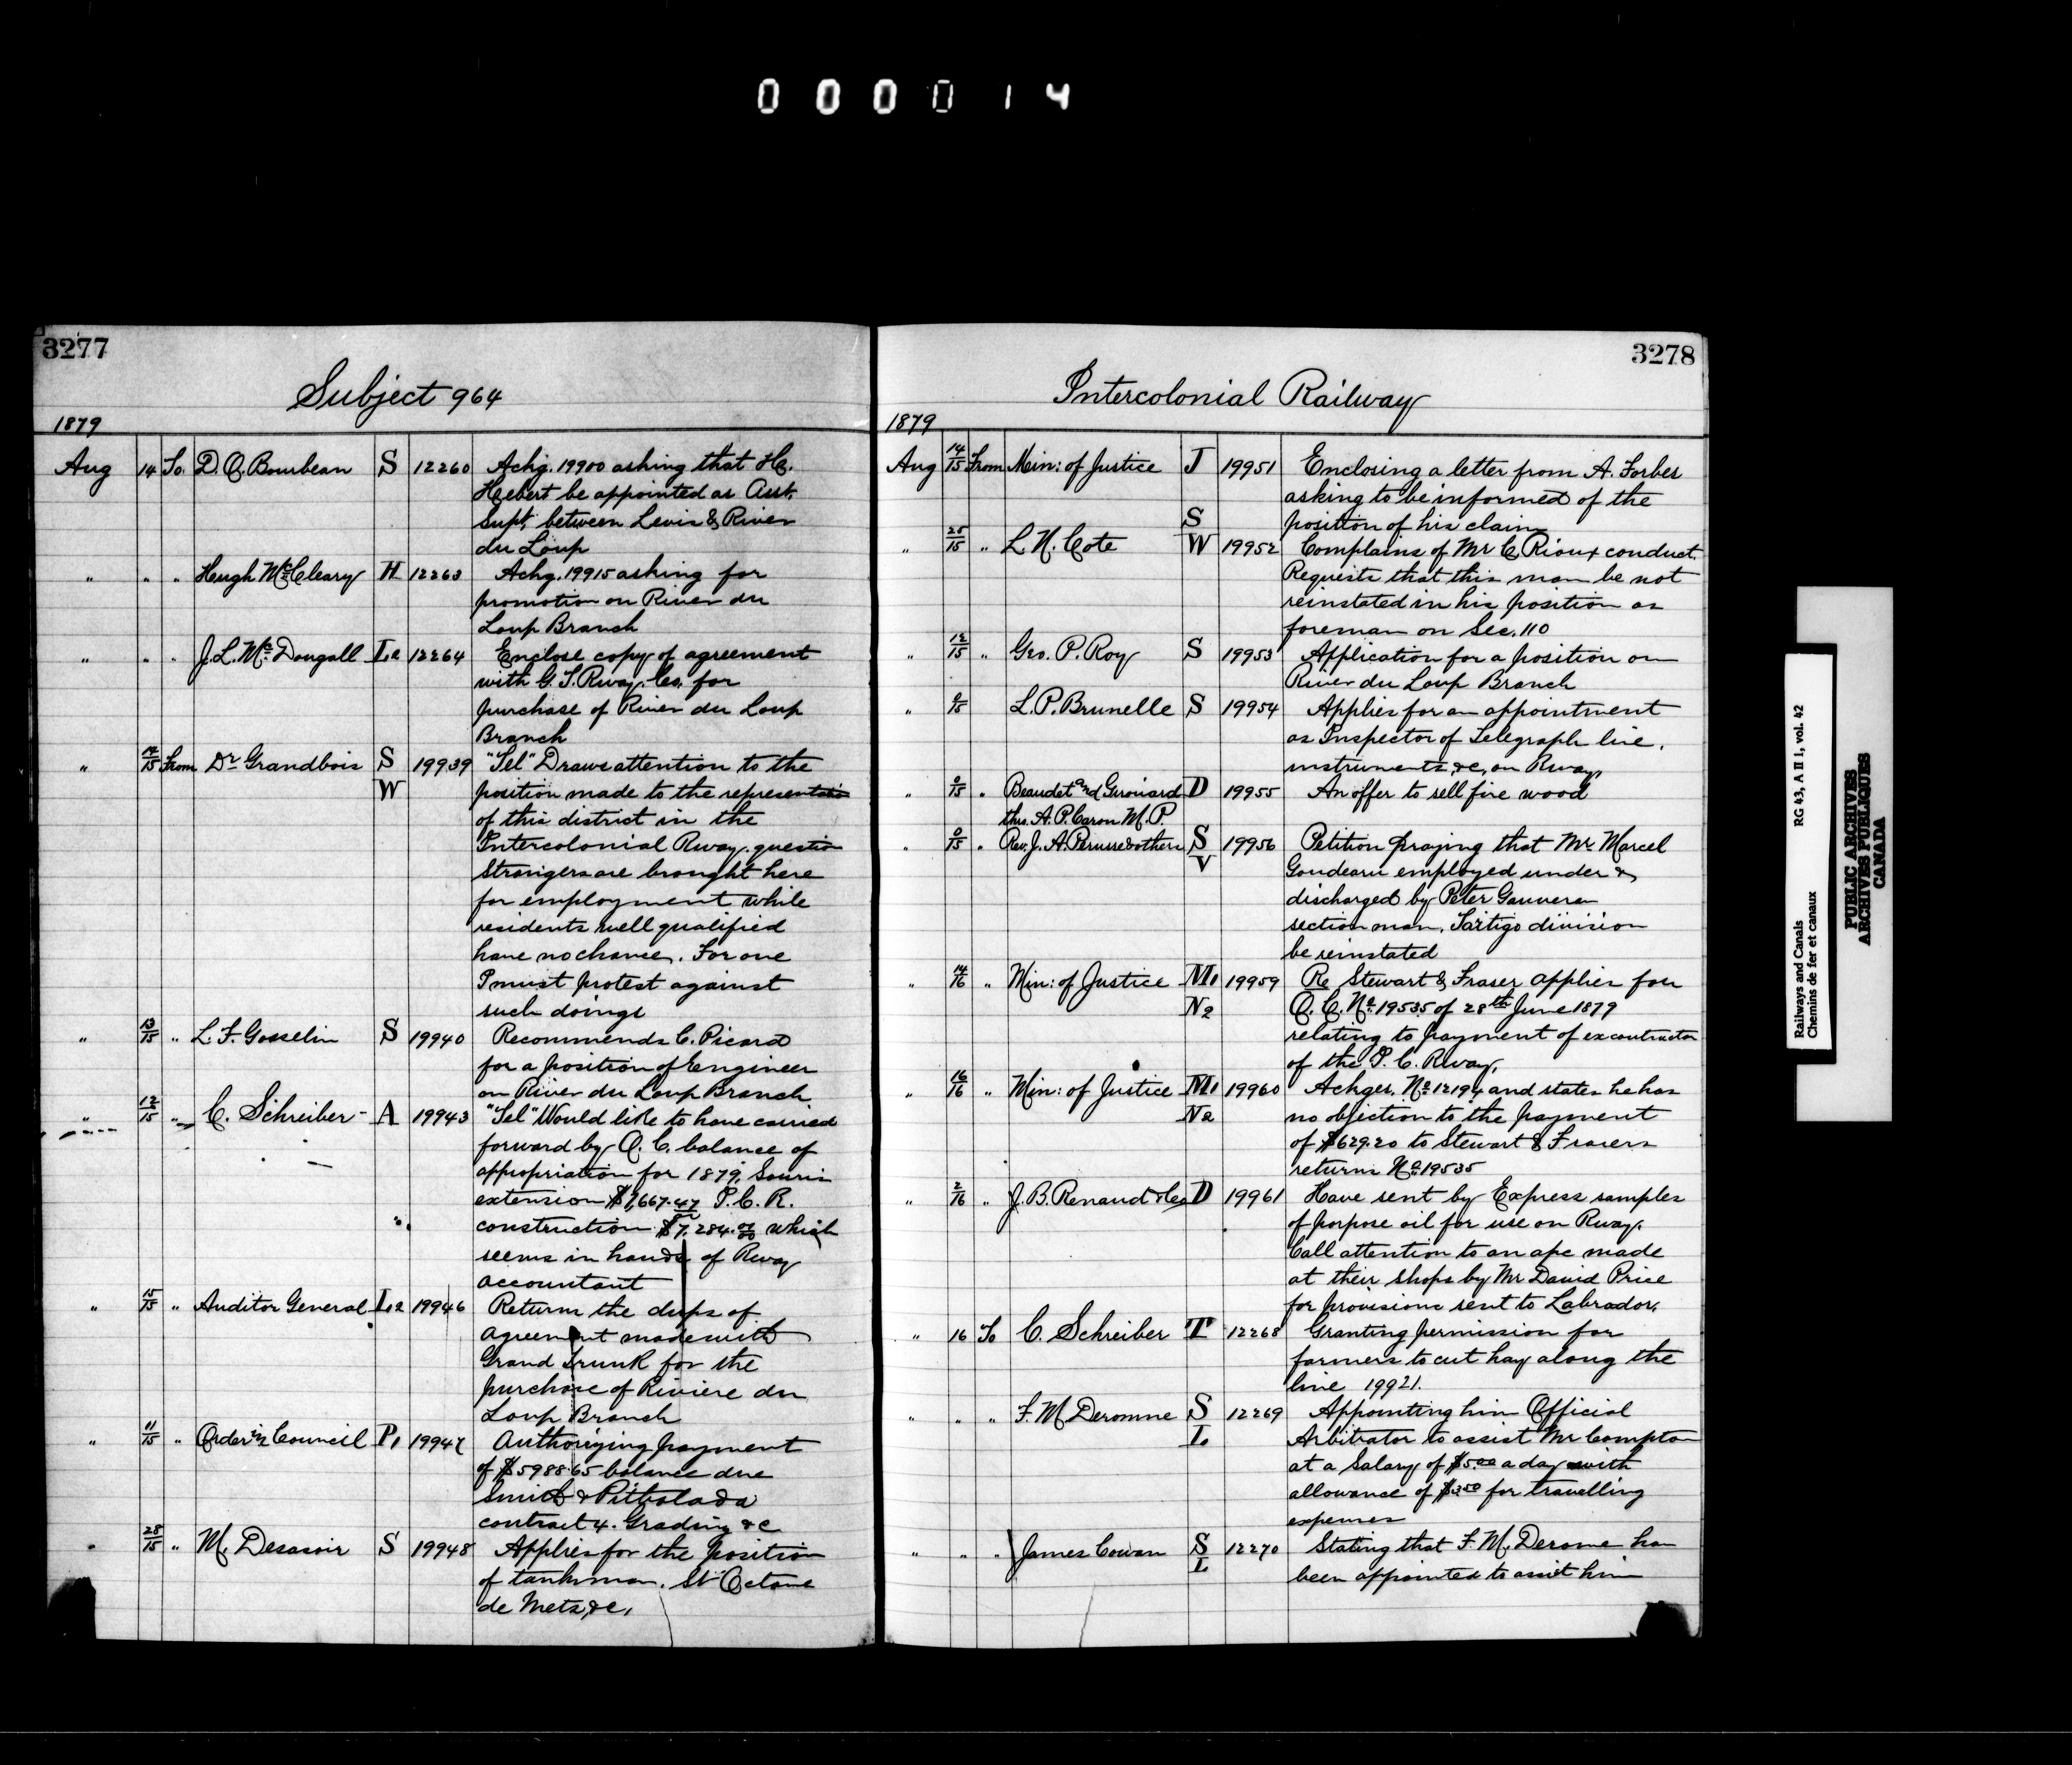 000014
3277
Subject 964
1879
Aug 14 To. D. O. Bourbeau S 12260 Achg. 19900 asking that H.
Hebert be appointed as Asst.
Supt. between Levis & River
du Loup
" " " Hugh McCleary H 12263 Achg. 19915 asking for
promotion on River du
Loup Branch
" " " J. L. McDougall L2 12264 Enclose copy of agreement
with G. T. Rway. Co. for
purchase of River du Loup
Branch
" 14/15 From Dr Grandbois S 19939 "Tel" Draws attention to the
W position made to the representation
of this district in the
Intercolonial Rway. question
Strangers are brought here
for employment while
residents well qualified
have no chance. For one
I must protest against
such doings
" 13/15 " L. F. Gosselin S 19940 Recommends C. Picard
for a position of Engineer
on River du Loup Branch
" 12/15 " C. Schreiber - A 19943 "Tel" Would like to have carried
forward by O. C. balance of
appropriation for 1879, Souris
extension $7,667.47 P. C. R.
construction $7,284.00 which
seems in hands of Rway
accountant
" 15/15 " Auditor General L2 19946 Return the dups of
agreement made with
Grand Trunk for the
purchase of Riviere du
Loup Branch
" 11/15 " Order in Council P1 19947 Authorizing payment
of $5988.65 balance due
Smith & Pitbolada
contract 4. Grading &c
" 28/15 " M. Desasoir S 19948 Applies for the position
of tankman. St Octave
de Metz, &c,
3278
Intercolonial Railway
1879
Aug 14/15 From Min: of Justice J 19951 Enclosing a letter from A. Forbes
asking to be informed of the
S position of his claim
" 25/15 " L. N. Cote W 19952 Complains of Mr C. Rioux conduct.
Requests that this man be not
reinstated in his position as
foreman on Sec. 110
" 12/15 " Geo. P. Roy S 19953 Application for a position on
River du Loup Branch
" 9/15 L. P. Brunelle S 19954 Applies for an appointment
as Inspector of Telegraph line,
instruments, &c, on Rway,
" 0/15 " Beaudet and Gerouard D 19955 An offer to sell fire wood
thro. A. P. Caron M. P.
" 0/15 " Rev. J. A. Perusse & others S 19956 Petition praying that Mr Marcel
V Goudeau employed under &
discharged by Peter Gauvereau
section man, Tartigo division
be reinstated
" 14/16 " Min: of Justice M1 19959 Re Stewart & Fraser applies for
N2 O. C. No. 19535 of 28th June 1879
relating to payment of ex contractor
of the P. C. Rway,
" 16/16 " Min: of Justice M1 19960 Achges. No 12194 and states he has
N2 no objection to the payment
of $629.20 to Stewart & Frasers
returns No 19535
" 2/16 " J. B. Renaud & Co D 19961 Have sent by Express samples
of porpose oil for use on Rway.
Call attention to an apc made
at their shops by Mr David Price
for provisions sent to Labrador.
" 16 To C. Schreiber T 12268 Granting permission for
farmers to cut hay along the
line 19921.
" " " F. M Deromne S 12269 Appointing him Official
L. Arbitrator to assist Mr Compton
at a Salary of $5.00 a day with
allowance of $3.50 for travelling
expenses
" " " James Cowan S 12270 Stating that F. M. Derome has
L been appointed to assist him
Railways and Canals RG 43, A II 1, vol. 42
Chemins de fer et canaux
PUBLIC ARCHIVES
ARCHIVES PUBLIQUES
CANADA